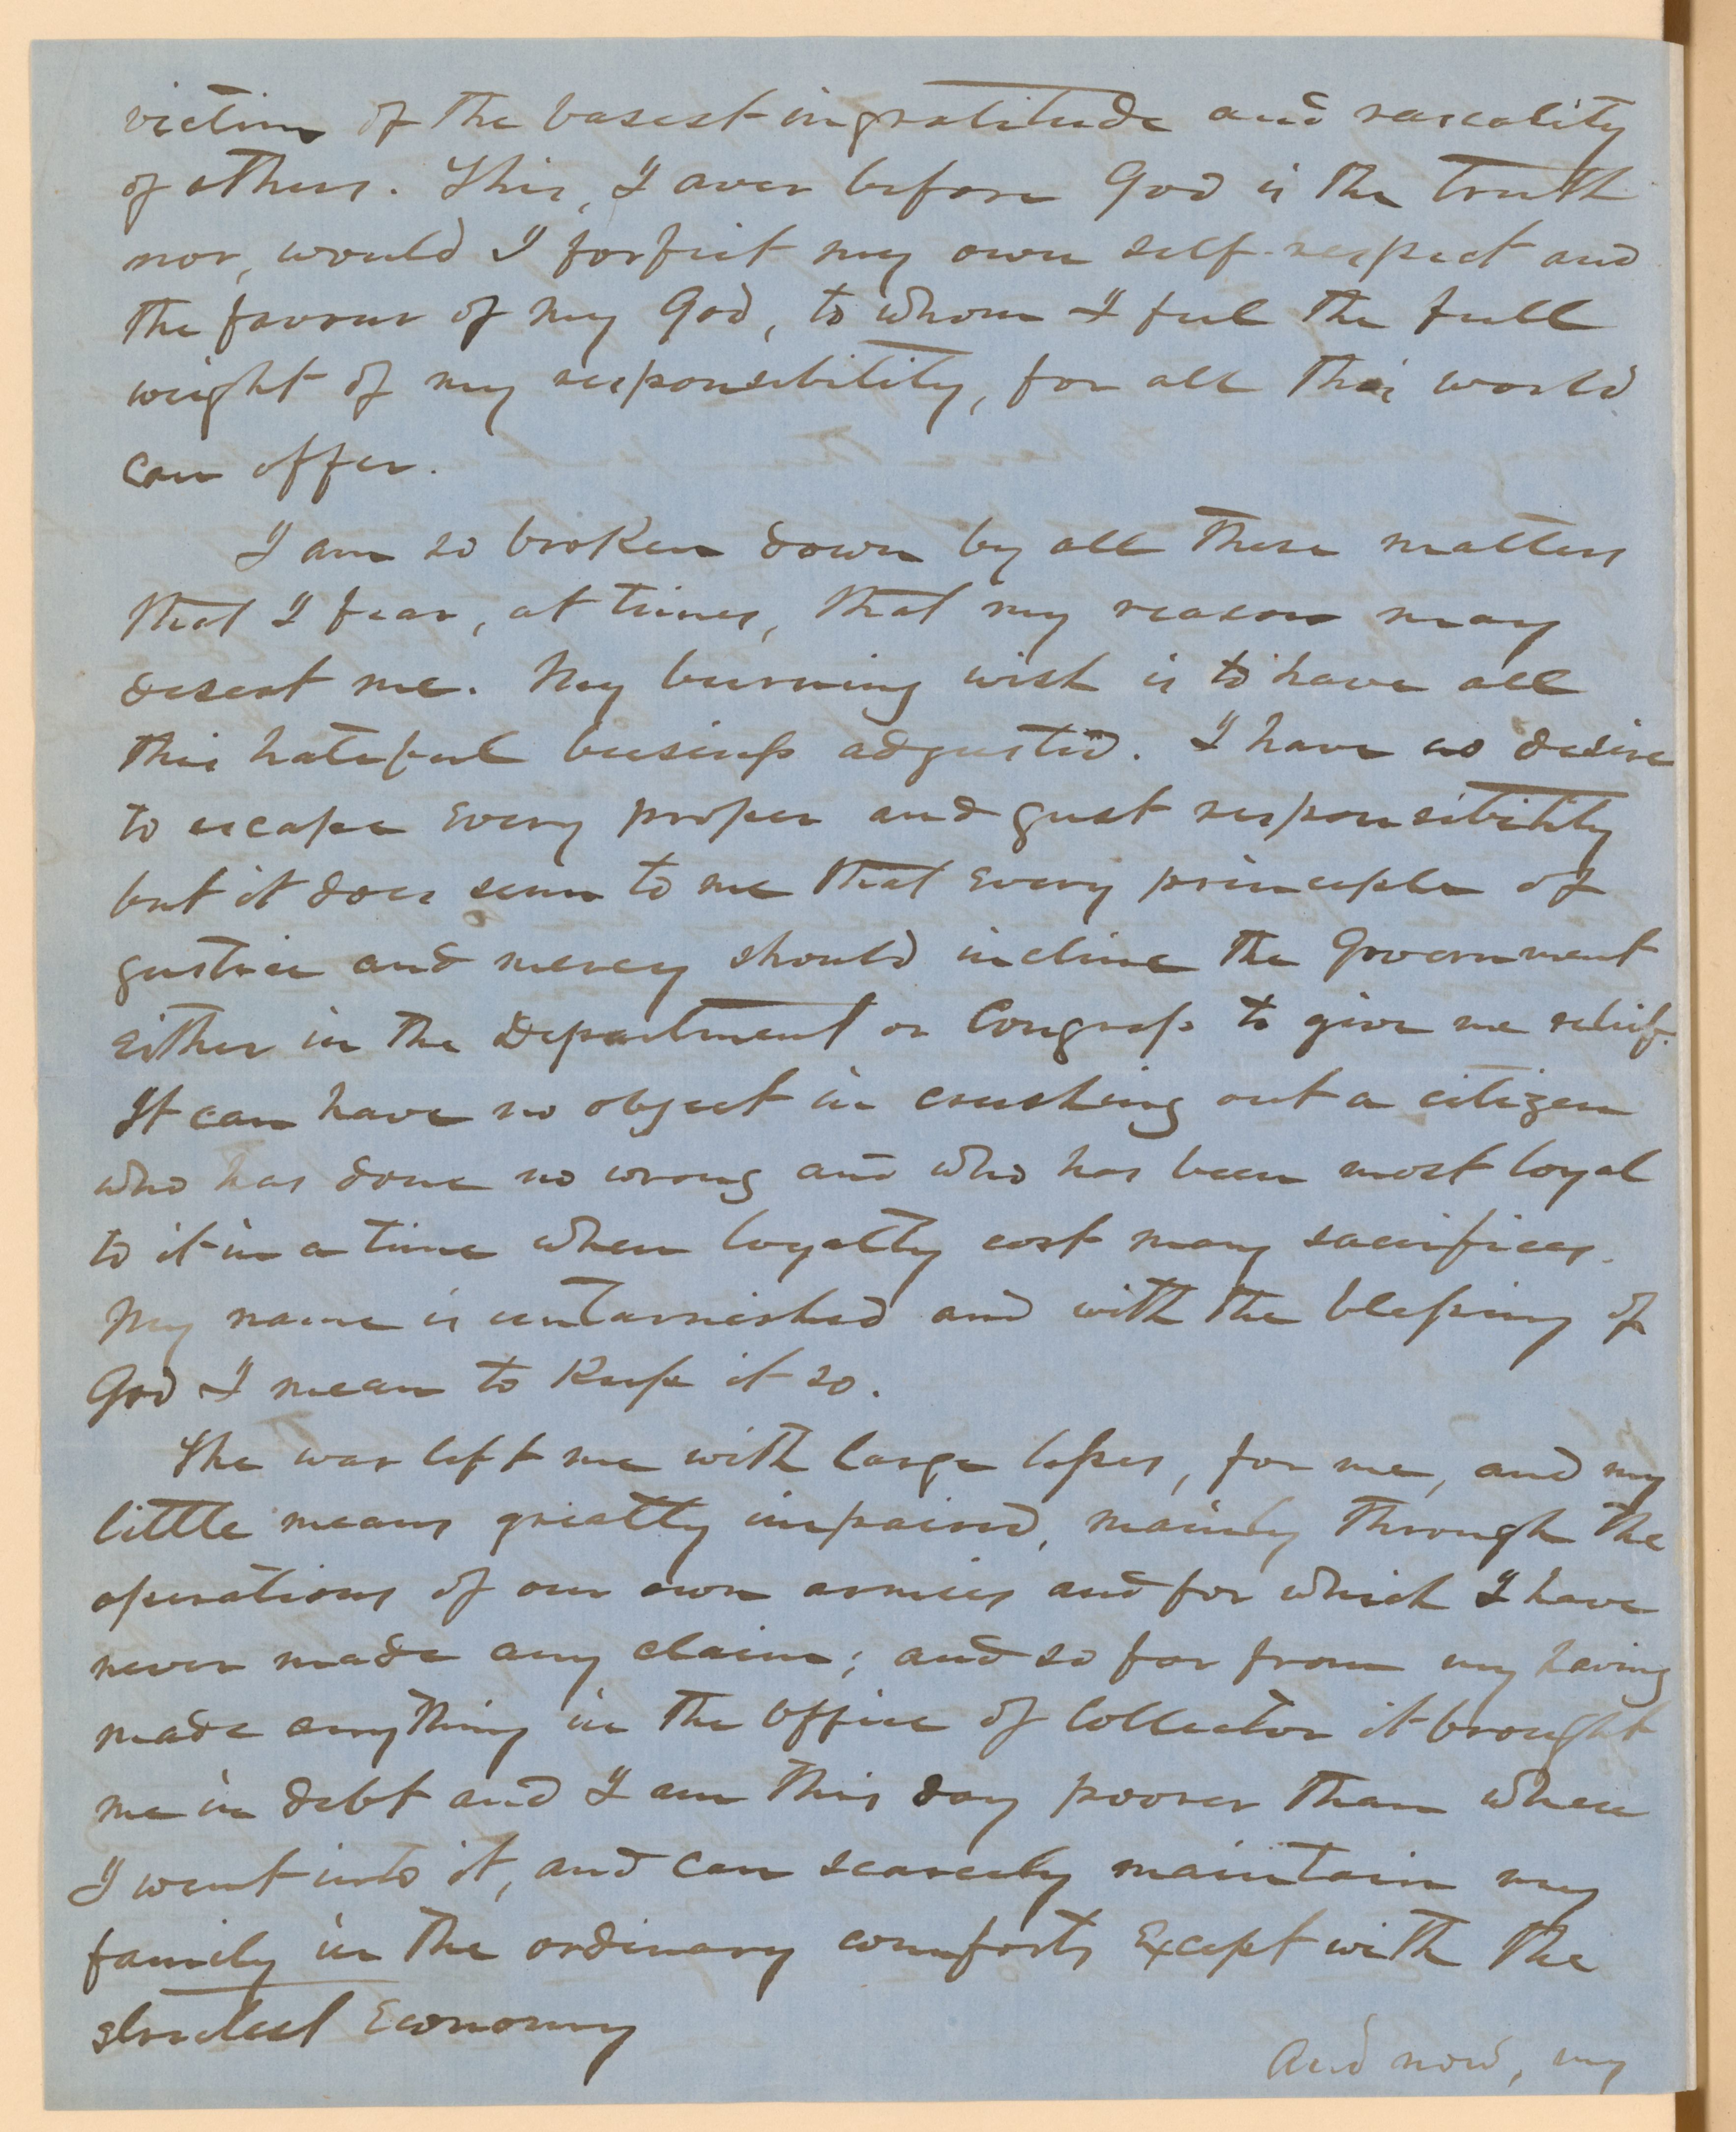 victim of the basest ingratitude and rascality
of others. This, I aver before God is the truth
nor, would I forfeit my own self-respect and
the favour of my God, to whom I feel the full
weight of my responsibility, for all this world
can offer.
I am so broken down by all these matters
that I fear, at times, that my reason may
desert me. My burning wish is to have all
this hateful business adjusted. I have no desire
to escape every proper and just responsibility
but it does seem to me that every principle of
justice and mercy should incline the Government
either in the Department or Congress to give me relief.
It can have no object in crushing out a citizen
who has done no wrong and who has been most loyal
to it in a time when loyalty cost many sacrifices.
My name is untarnished and with the blessing of
God I mean to keep it so.
The war left me with large losses, for me, and my
little means greatly impaired, mainly through the
operations of our own armies and for which I have
never made any claim; and so far from my having
made anything in the office of Collector it brought
me in debt and I am this day poorer than when
I went into it, and can scarcely maintain my
family in the ordinary comforts Except with the
strictest Economy
And now, my